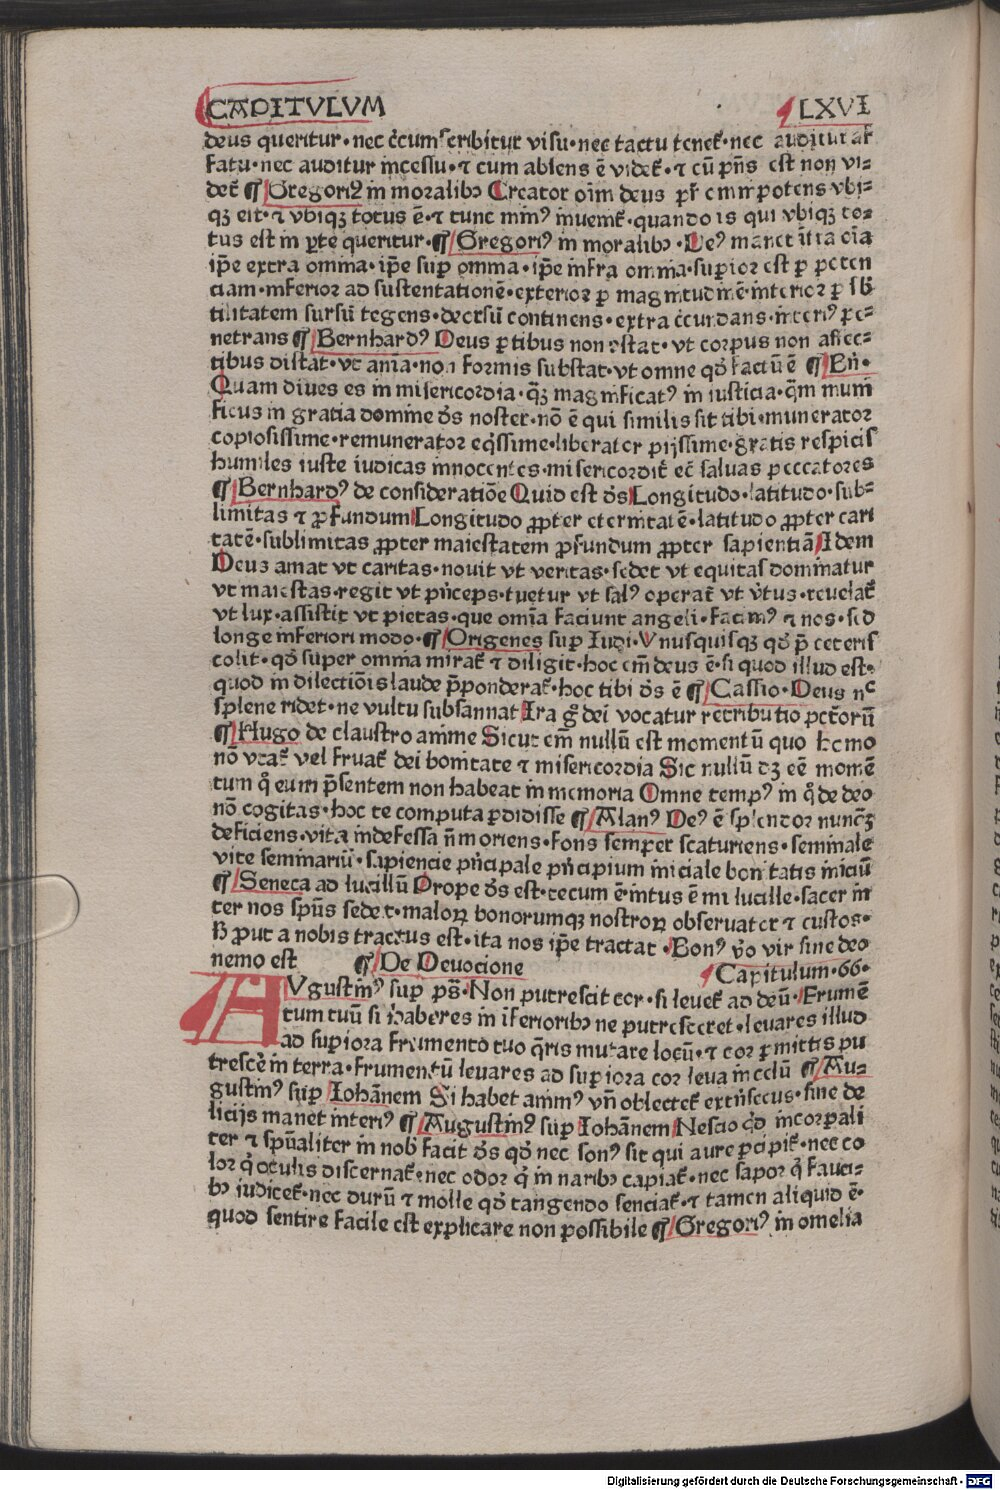 CAPITULUM LXVI
deus queritur · nec c̄cumscribitur visu · nec tactu tenet᷑ · nec auditui aī
fatu · nec auditur incessu · ⁊ cum absens ē videt᷑ · ⁊ cū pn̄s est non vi⸗
det᷑ ¶ Gregoriꝰ in moralibꝫ Creator oīm deus pr̄ omnipotens vbi⸗
qꝫ est · ⁊ vbiqꝫ totus ē · ⁊ tunc mīnꝰ inuenit᷑ · quando is qui vbiqꝫ to⸗
tus est in ꝑte queritur · ¶ Gregoriꝰ in moralibꝫ · Deꝰ manet īt̄ra oīa
ip̄e extra omnia · ip̄e suꝑ omnia · ip̄e infra omnia · superior est ꝑ poten
ciam · inferior ad sustentationē · exterior ꝑ magnitudinē · interior ꝑ sb̄
tilitatem sursū tegens · deorsū continens · extra c̄cundans · interiꝰ pe⸗
netrans ¶ Bernhardꝰ Deus ꝑtibus non cstat · vt corpus non affec⸗
tibus distat · vt aīa · non formis substat · vt omne qđ factū ē ¶ Bn̄ ·
Quam diues es in misericordia · qꝫ magnificatꝰ in iusticia · qm̄ muni
ficus in gratia domine dſ̄ noster · nō ē qui similis sit tibi · munerator
copiosissime · remunerator eqssime · liberator pijssime · gratis respicis
humiles iuste iudicas innocentes · misericordit᷑ eē saluas peccatores
¶ Bernhardꝰ de consideratiōe Quid est dſ̄ Longitudo · latitudo · sub⸗
limitas ⁊ ꝓfundum Longitudo ꝓpter eternitatē · latitudo ꝓpter cari
tatē · sublimitas ꝓpter maiestatem ꝓfundum ꝓpter sapientiā Idem
Deus amat vt caritas · nouit vt veritas · sedet vt equitas dominatur
vt maiestas · regit vt pn̄ceps · tuetur vt salꝰ operat᷑ vt v̄tus · reuelat᷑
vt lux · assistit vt pietas · que omīa faciunt angeli · facimꝰ ⁊ nos · sed
longe inferiori modo · ¶ Origenes suꝑ Iudi · Vnusquisqꝫ qđ p̄ ceteris
colit · qđ super omnia mirat᷑ ⁊ diligit · hoc eīm deus ē · si quod illud est ·
quod in dilectiōis laude p̄ponderat᷑ · hoc tibi dſ̄ ē ¶ Cassio · Deus nᶜ
splene ridet · ne vultu subsannat Ira g̊ dei vocatur retributio pctōrū
¶ Hugo de claustro anime Sicut eīm nullū est momentū quo homo
nō vtat᷑ vel fruat᷑ dei bonitate ⁊ misericordia Sic nullū dꝫ eē momē
tum q̊ eum p̄sentem non habeat in memoria Omne tempꝰ in q̊ de deo
nō cogitas · hoc te computa ꝑdidisse ¶ Alanꝰ Deꝰ ē splendor nuncꝫ
deficiens · vita indefessa n̄ moriens · fons semper scaturiens · seminale
vite seminariū · sapiencie pn̄cipale pn̄cipium iniciale bonitatis iniciū
¶ Seneca ad lucillū Prope dſ̄ est · tecum ē · intus ē mi lucille · sacer in
ter nos sp̄us sedet · maloꝝ bonorumqꝫ nostroꝝ obseruator ⁊ custos ·
H̄ prout a nobis tractus est · ita nos ip̄e tractat · Bonꝰ v̊o vir sine deo
nemo est ¶ De Deuocione Capitulum · 66 ·
AVgustinꝰ suꝑ ps̄ · Non putrescit cor · si leuet᷑ ad deū · Frumē
tum tuū si haberes in īferioribꝫ ne putresceret · leuares illud
ad superiora frumento tuo q̄ris mutare locū · ⁊ cor ꝑmittis pu
trescē in terra · frumentū leuares ad superiora cor leua in celū ¶ Au⸗
gustinꝰ suꝑ Iohānem Si habet animꝰ vn̄ oblectet᷑ extn̄secus · sine de
licijs manet interiꝰ ¶ Augustinꝰ suꝑ Iohānem Nescio qđ incorꝑali
ter ⁊ sp̄ualiter in nob̄ facit dſ̄ qđ nec sonꝰ sit qui aure ꝑcipit᷑ · nec co
lor q̊ oculis discernat᷑ · nec odor q̊ in naribꝫ capiat᷑ · nec sapor q̊ fauci⸗
bꝫ iudicet᷑ · nec durū ⁊ molle qđ tangendo senciat᷑ · ⁊ tamen aliquid ē ·
quod sentire facile est explicare non possibile ¶ Gregoriꝰ in omelia
Digitalisierung gefördert durch die Deutsche Forschungsgemeinschaft · DFG